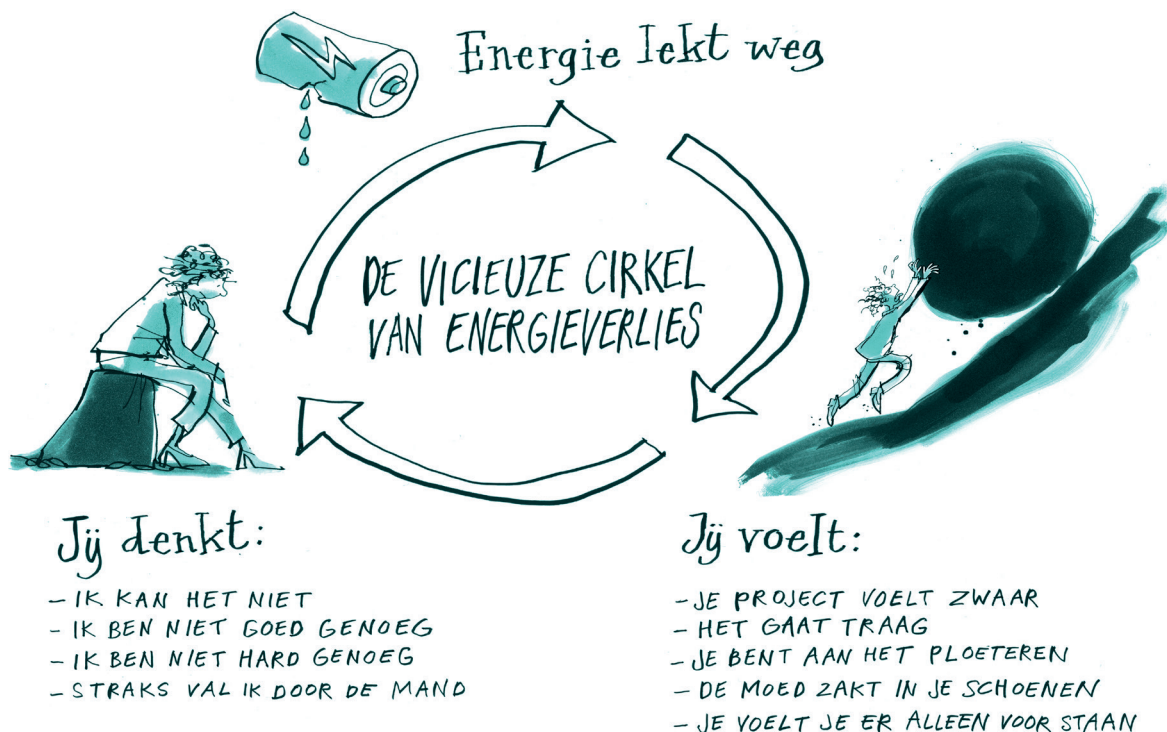 Energie lekt weg
DE VICIEUZE CIRKEL
VAN ENERGIEVERLIES
Jij denkt:
- IK KAN HET NIET
- IK BEN NIET GOED GENOEG
- IK BEN NIET HARD GENOEG
- STRAKS VAL IK DOOR DE MAND
Jij voelt:
- JE PROJECT VOELT ZWAAR
- HET GAAT TRAAG
- JE BENT AAN HET PLOETEREN
- DE MOED ZAKT IN JE SCHOENEN
- JE VOELT JE ER ALLEEN VOOR STAAN